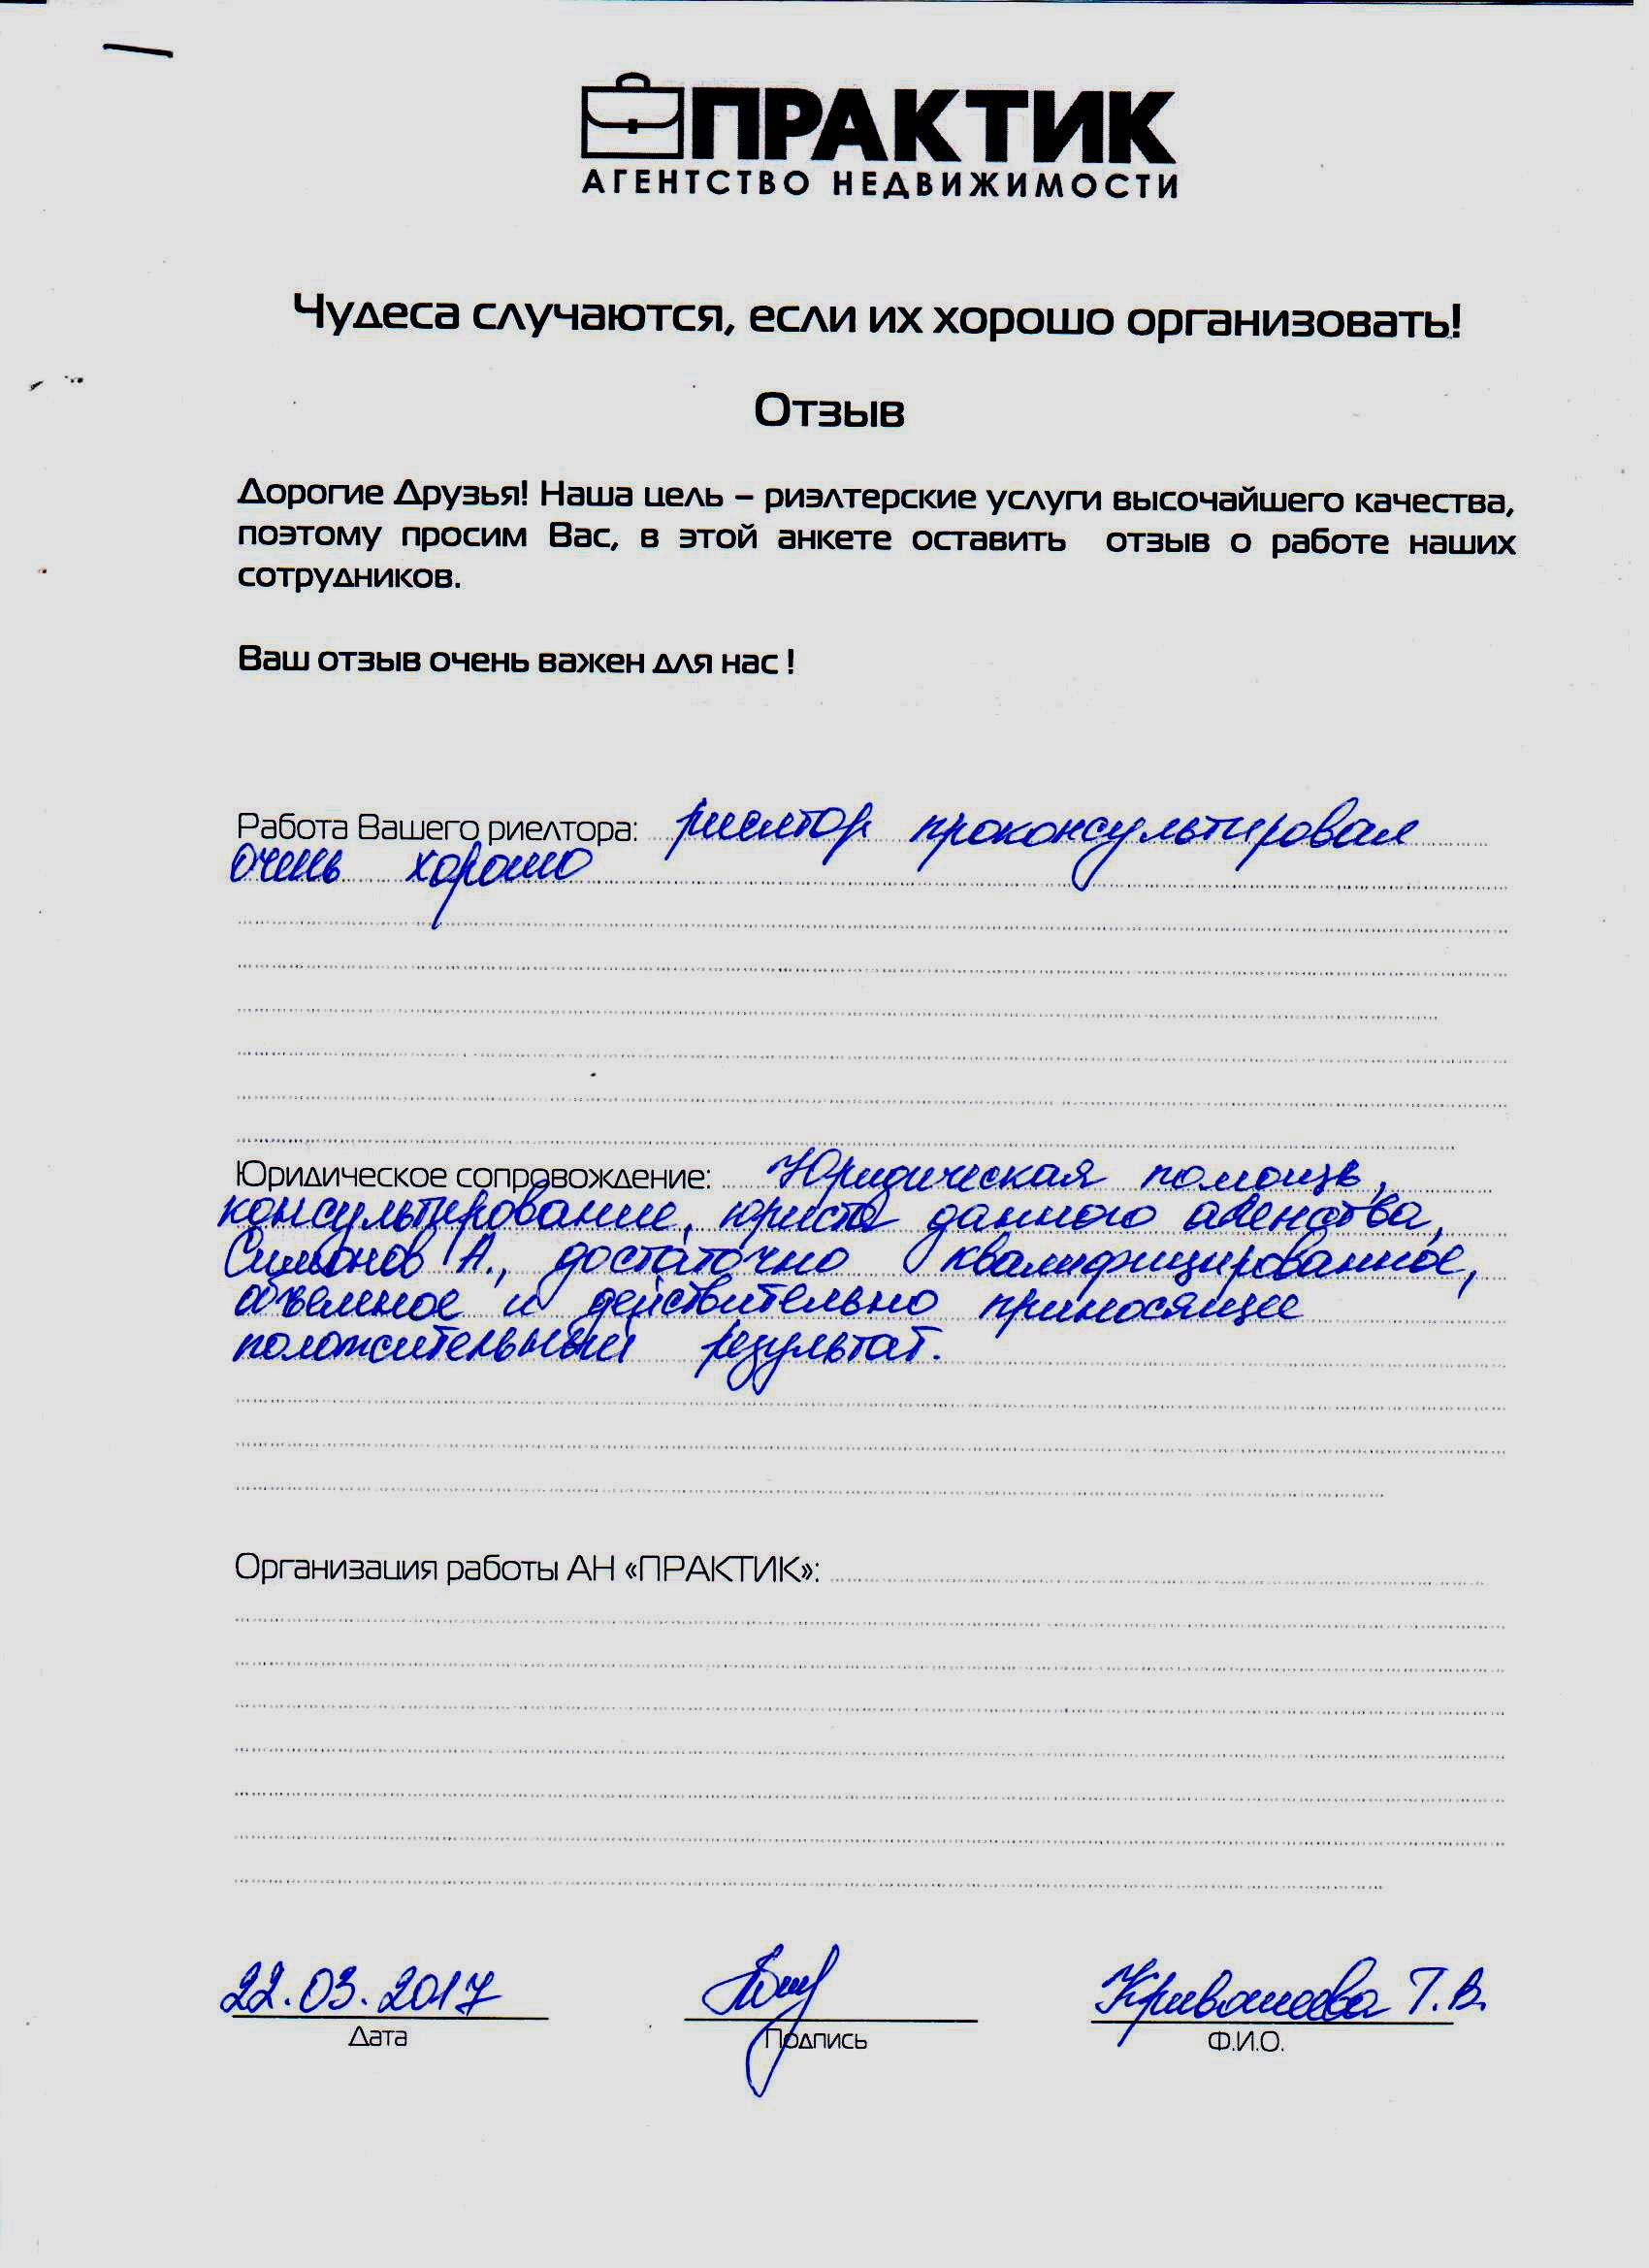 ПРАКТИК
АГЕНТСТВО НЕДВИЖИМОСТИ
Чудеса случаются, если их хорошо организовать!
Отзыв
Дорогие Друзья! Наша цель – риэлтерские услуги высочайшего качества,
поэтому просим Вас, в этой анкете оставить отзыв о работе наших
сотрудников.
Ваш отзыв очень важен для нас !
Работа Вашего риелтора: риелтор проконсультировал
очень хорошо
Юридическое сопровождение: Юридическая помощь,
консультирование, юриста данного агенства,
Симонов А., достаточно квалифицированное,
объемное и действительно приносящее
положительный результат.
Организация работы АН «ПРАКТИК»:
22.03.2017 Кривошеева Т.В.
Дата Подпись Ф.И.О.